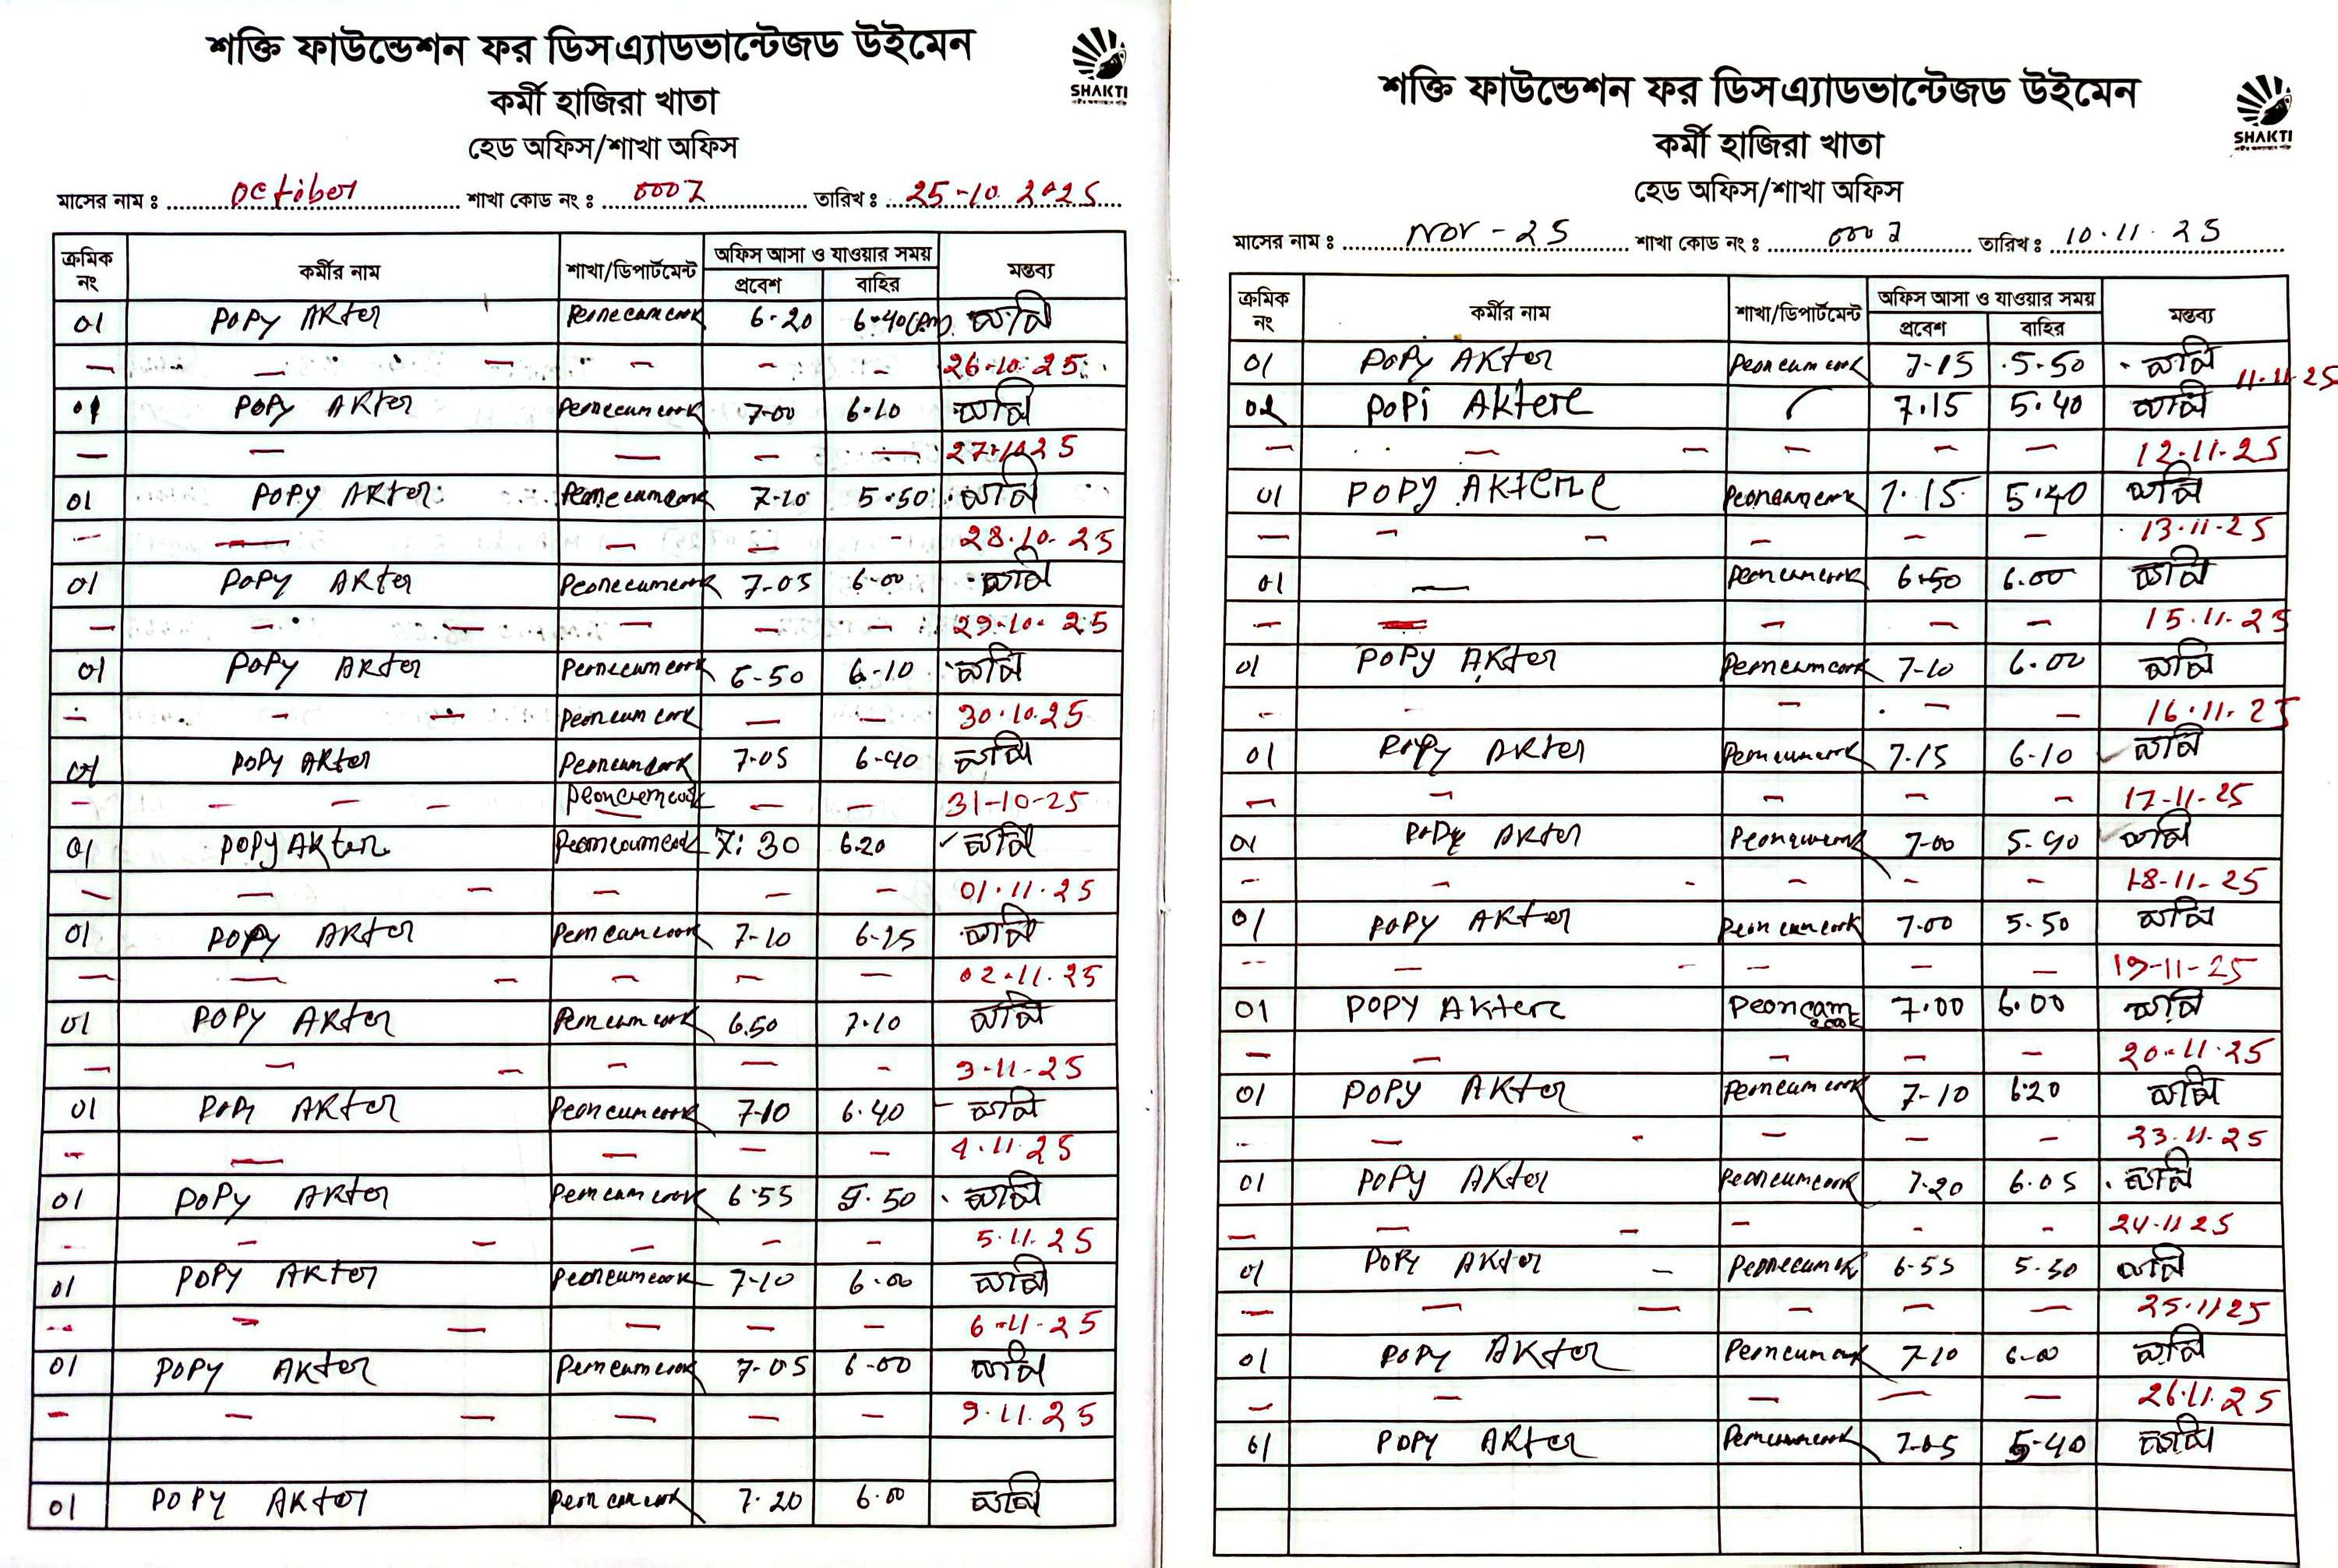 শক্তি ফাউন্ডেশন ফর ডিসএ্যাডভান্টেজড উইমেন
SHAKTI
কর্মী হাজিরা খাতা
হেড অফিস/শাখা অফিস
মাসের নাম ঃ October শাখা কোড নং ঃ 0007 তারিখ ঃ 25-10.2025
ক্রমিক নং কর্মীর নাম শাখা/ডিপার্টমেন্ট অফিস আসা ও যাওয়ার সময় মন্তব্য
প্রবেশ বাহির
01 POPY AKter Peonecumcook 6-20 6-40(Pm)
— — — — — — 26-10.25
01 POPY AKter Peonecumcook 7-00 6-10
— — — — — 27-10.25
01 POPY AKter Peonecumcook 7-10 5.50
— — — — — 28.10.25
01 POPY AKter Peonecumcook 7-05 6-00
— — — — — — 29-10-25
01 POPY AKter Peonecumcook 6-50 6-10
— — — Peoncumcook — — 30.10.25
01 POPY AKter Peoncumcook 7-05 6-40
— — — — Peoncumcook — — 31-10-25
01 POPY AKter Peoncumcook 7:30 6.20
— — — — — — 01.11.25
01 POPY AKter Peoncumcook 7-10 6-25
— — — — — — 02.11.25
01 POPY AKter Peoncumcook 6.50 7.10
— — — — — — 3-11-25
01 POPY AKter Peoncumcook 7-10 6.40
— — — — — 4.11.25
01 POPY AKter Peoncumcook 6.55 5.50
— — — — — — 5.11.25
01 POPY AKter Peoncumcook 7-10 6.00
— — — — — — 6-11-25
01 POPY AKter Peoncumcook 7-05 6-00
— — — — — — 9.11.25
01 POPY AKter Peoncumcook 7.20 6.00
শক্তি ফাউন্ডেশন ফর ডিসএ্যাডভান্টেজড উইমেন
SHAKTI
কর্মী হাজিরা খাতা
হেড অফিস/শাখা অফিস
মাসের নাম ঃ Nov-25 শাখা কোড নং ঃ 0007 তারিখ ঃ 10.11.25
ক্রমিক নং কর্মীর নাম শাখা/ডিপার্টমেন্ট অফিস আসা ও যাওয়ার সময় মন্তব্য
প্রবেশ বাহির
01 POPY AKter Peoncumcook 7-15 5-50 11.11.25
02 POPi AKtere 7.15 5.40
— — — — — — 12.11.25
01 POPY AKtere Peoncumcook 7.15 5.40
— — — — — — 13.11-25
01 — Peoncumcook 6.50 6.00
— — — — — 15.11.25
01 POPY AKter Peoncumcook 7-10 6.00
— — — — 16.11.25
01 POPY AKter Peoncumcook 7.15 6-10
— — — — — 17-11-25
01 POPY AKter Peoncumcook 7-00 5-40
— — — — — — 18-11-25
01 POPY AKter Peoncumcook 7.00 5.50
— — — — — — 19-11-25
01 POPY AKtere Peoncumcook 7.00 6.00
— — — — — 20-11.25
01 POPY AKter Peoncumcook 7-10 6.20
— — — — — — 23.11.25
01 POPY AKter Peoncumcook 7.20 6.05
— — — — — — 24.11.25
01 POPY AKter — 6-55 5-50
— — — — — — 25.11.25
01 POPY AKter Peoncumcook 7-10 6-00
— — — — — 26.11.25
01 POPY AKter Peoncumcook 7-05 5-40